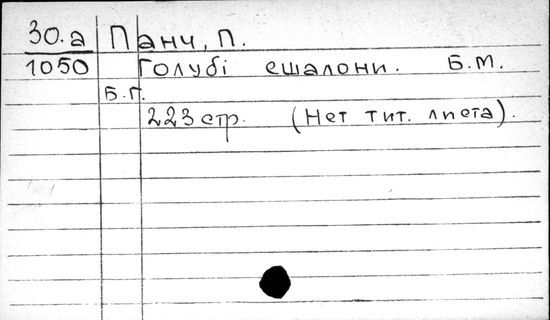 30.а Панч, П.
1050 Голубі ешалони. Б.М.
Б.Г.
223 стр. (Нет тит. листа).